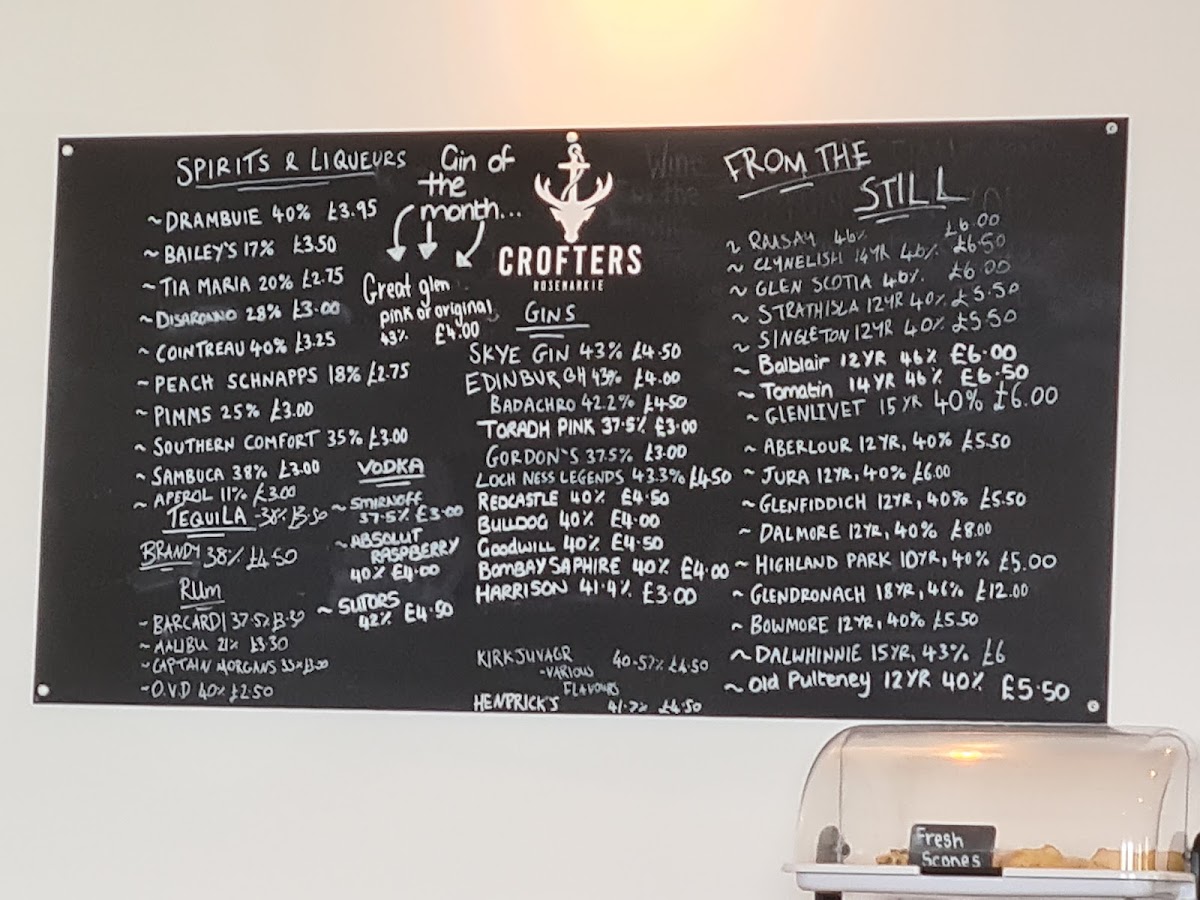 SPIRITS & LIQUEURS
~ DRAMBUIE 40% £3.95
~ BAILEY'S 17% £3.50
~ TIA MARIA 20% £2.75
~ DISARONNO 28% £3.00
~ COINTREAU 40% £3.25
~ PEACH SCHNAPPS 18% £2.75
~ PIMMS 25% £3.00
~ SOUTHERN COMFORT 35% £3.00
~ SAMBUCA 38% £3.00
~ APEROL 11% £3.00
TEQUILA - 38% £3.50
BRANDY 38% £4.50
RUM
~ BARCARDI 37.5% £3.30
~ MALIBU 21% £3.30
~ CAPTAIN MORGANS
~ O.V.D 40% £2.50
Gin of
the
month...
Great glen
pink or original
43% £4.00
VODKA
~ SMIRNOFF
37.5% £3.00
~ ABSOLUT
RASPBERRY
40% £4.00
~ SUTORS
42% £4.50
CROFTERS
ROSEMARKIE
GINS
SKYE GIN 43% £4.50
EDINBURGH 43% £4.00
BADACHRO 42.2% £4.50
TORADH PINK 37.5% £3.00
GORDON'S 37.5% £3.00
LOCH NESS LEGENDS 43.3% £4.50
REDCASTLE 40% £4.50
BULLDOG 40% £4.00
GOODWILL 40% £4.50
BOMBAY SAPHIRE 40% £4.00
HARRISON 41.4% £3.00
KIRKJUVAGR 40-57% £4.50
-VARIOUS
FLAVOURS
HENDRICK'S 41.7% £4.50
Wine
For the
FROM THE
STILL
~ RAASAY 46% £6.00
~ CLYNELISH 14YR 46% £6.50
~ GLEN SCOTIA 40% £6.00
~ STRATHISLA 12YR 40% £5.50
~ SINGLETON 12YR 40% £5.50
~ Balblair 12YR 46% £6.00
~ Tomatin 14YR 46% £6.50
~ GLENLIVET 15YR 40% £6.00
~ ABERLOUR 12YR, 40% £5.50
~ JURA 12YR, 40% £6.00
~ GLENFIDDICH 12YR, 40% £5.50
~ DALMORE 12YR, 40% £8.00
~ HIGHLAND PARK 10YR, 40% £5.00
~ GLENDRONACH 18YR, 46% £12.00
~ BOWMORE 12YR, 40% £5.50
~ DALWHINNIE 15YR, 43% £6
~ Old Pulteney 12YR 40% £5.50
Fresh
Scones